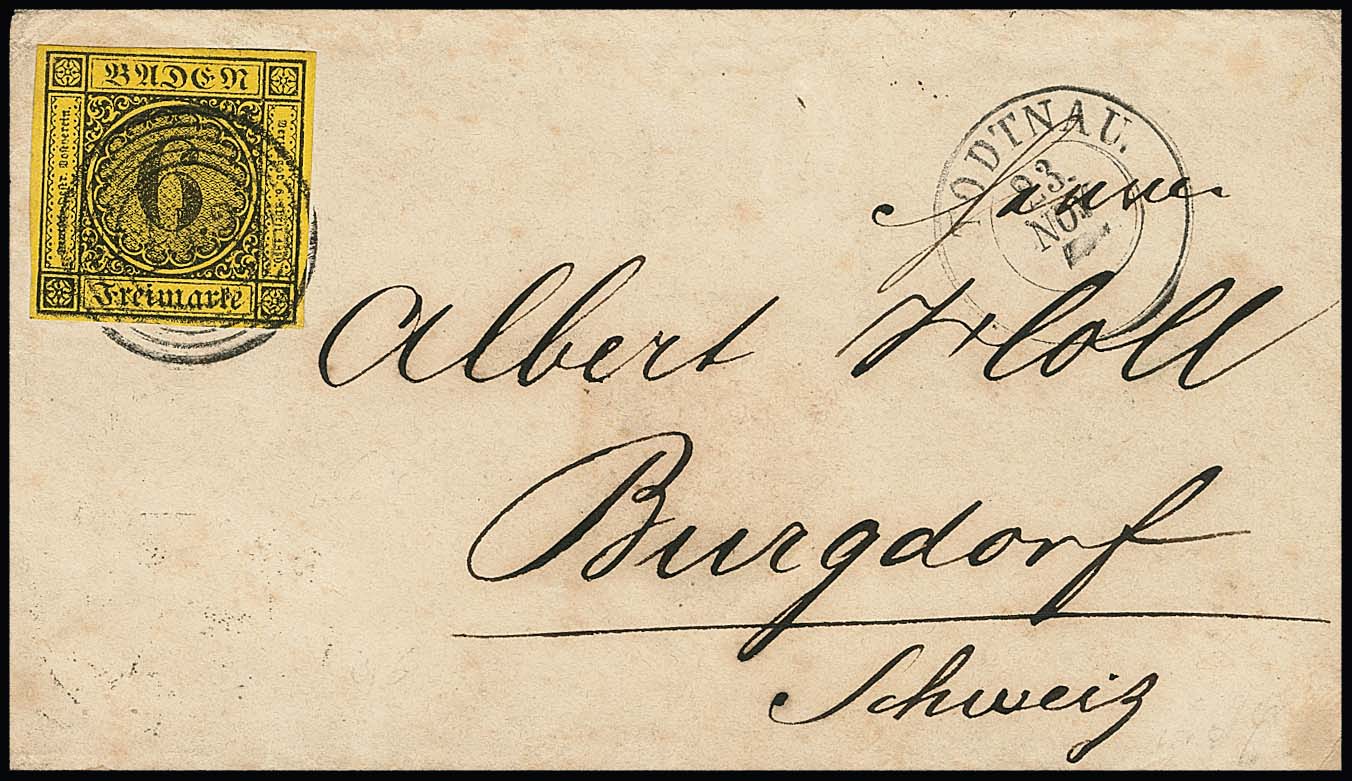 BADEN
6
Freimarke
TODTNAU.
23.
NOV
franco
Albert Holl
Burgdorf
Schweiz